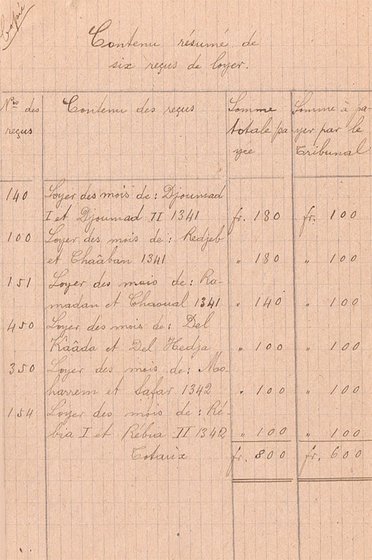 Copie
Contenu résumé de
six reçus de loyer.
Nos des Contenu des reçus Somme Somme à pa-
reçus totale pa yer par le
yée Tribunal
140 Loyer des mois de: Djoumad
I et Djoumad II 1341 fr. 180 fr. 100
100 Loyer des mois de: Redjeb
et Chaâban 1341 " 180 " 100
151 Loyer des mois de: Ra-
madan et Chaoual 1341 " 140 " 100
450 Loyer des mois de: Del
Kaâda et Del Hedja " 100 " 100
350 Loyer des mois de: Mo-
harrem et Safar 1342 " 100 " 100
154 Loyer des mois de: Ré-
bia I et Rébia II 1342 " 100 " 100
Totaux fr. 800 fr. 600